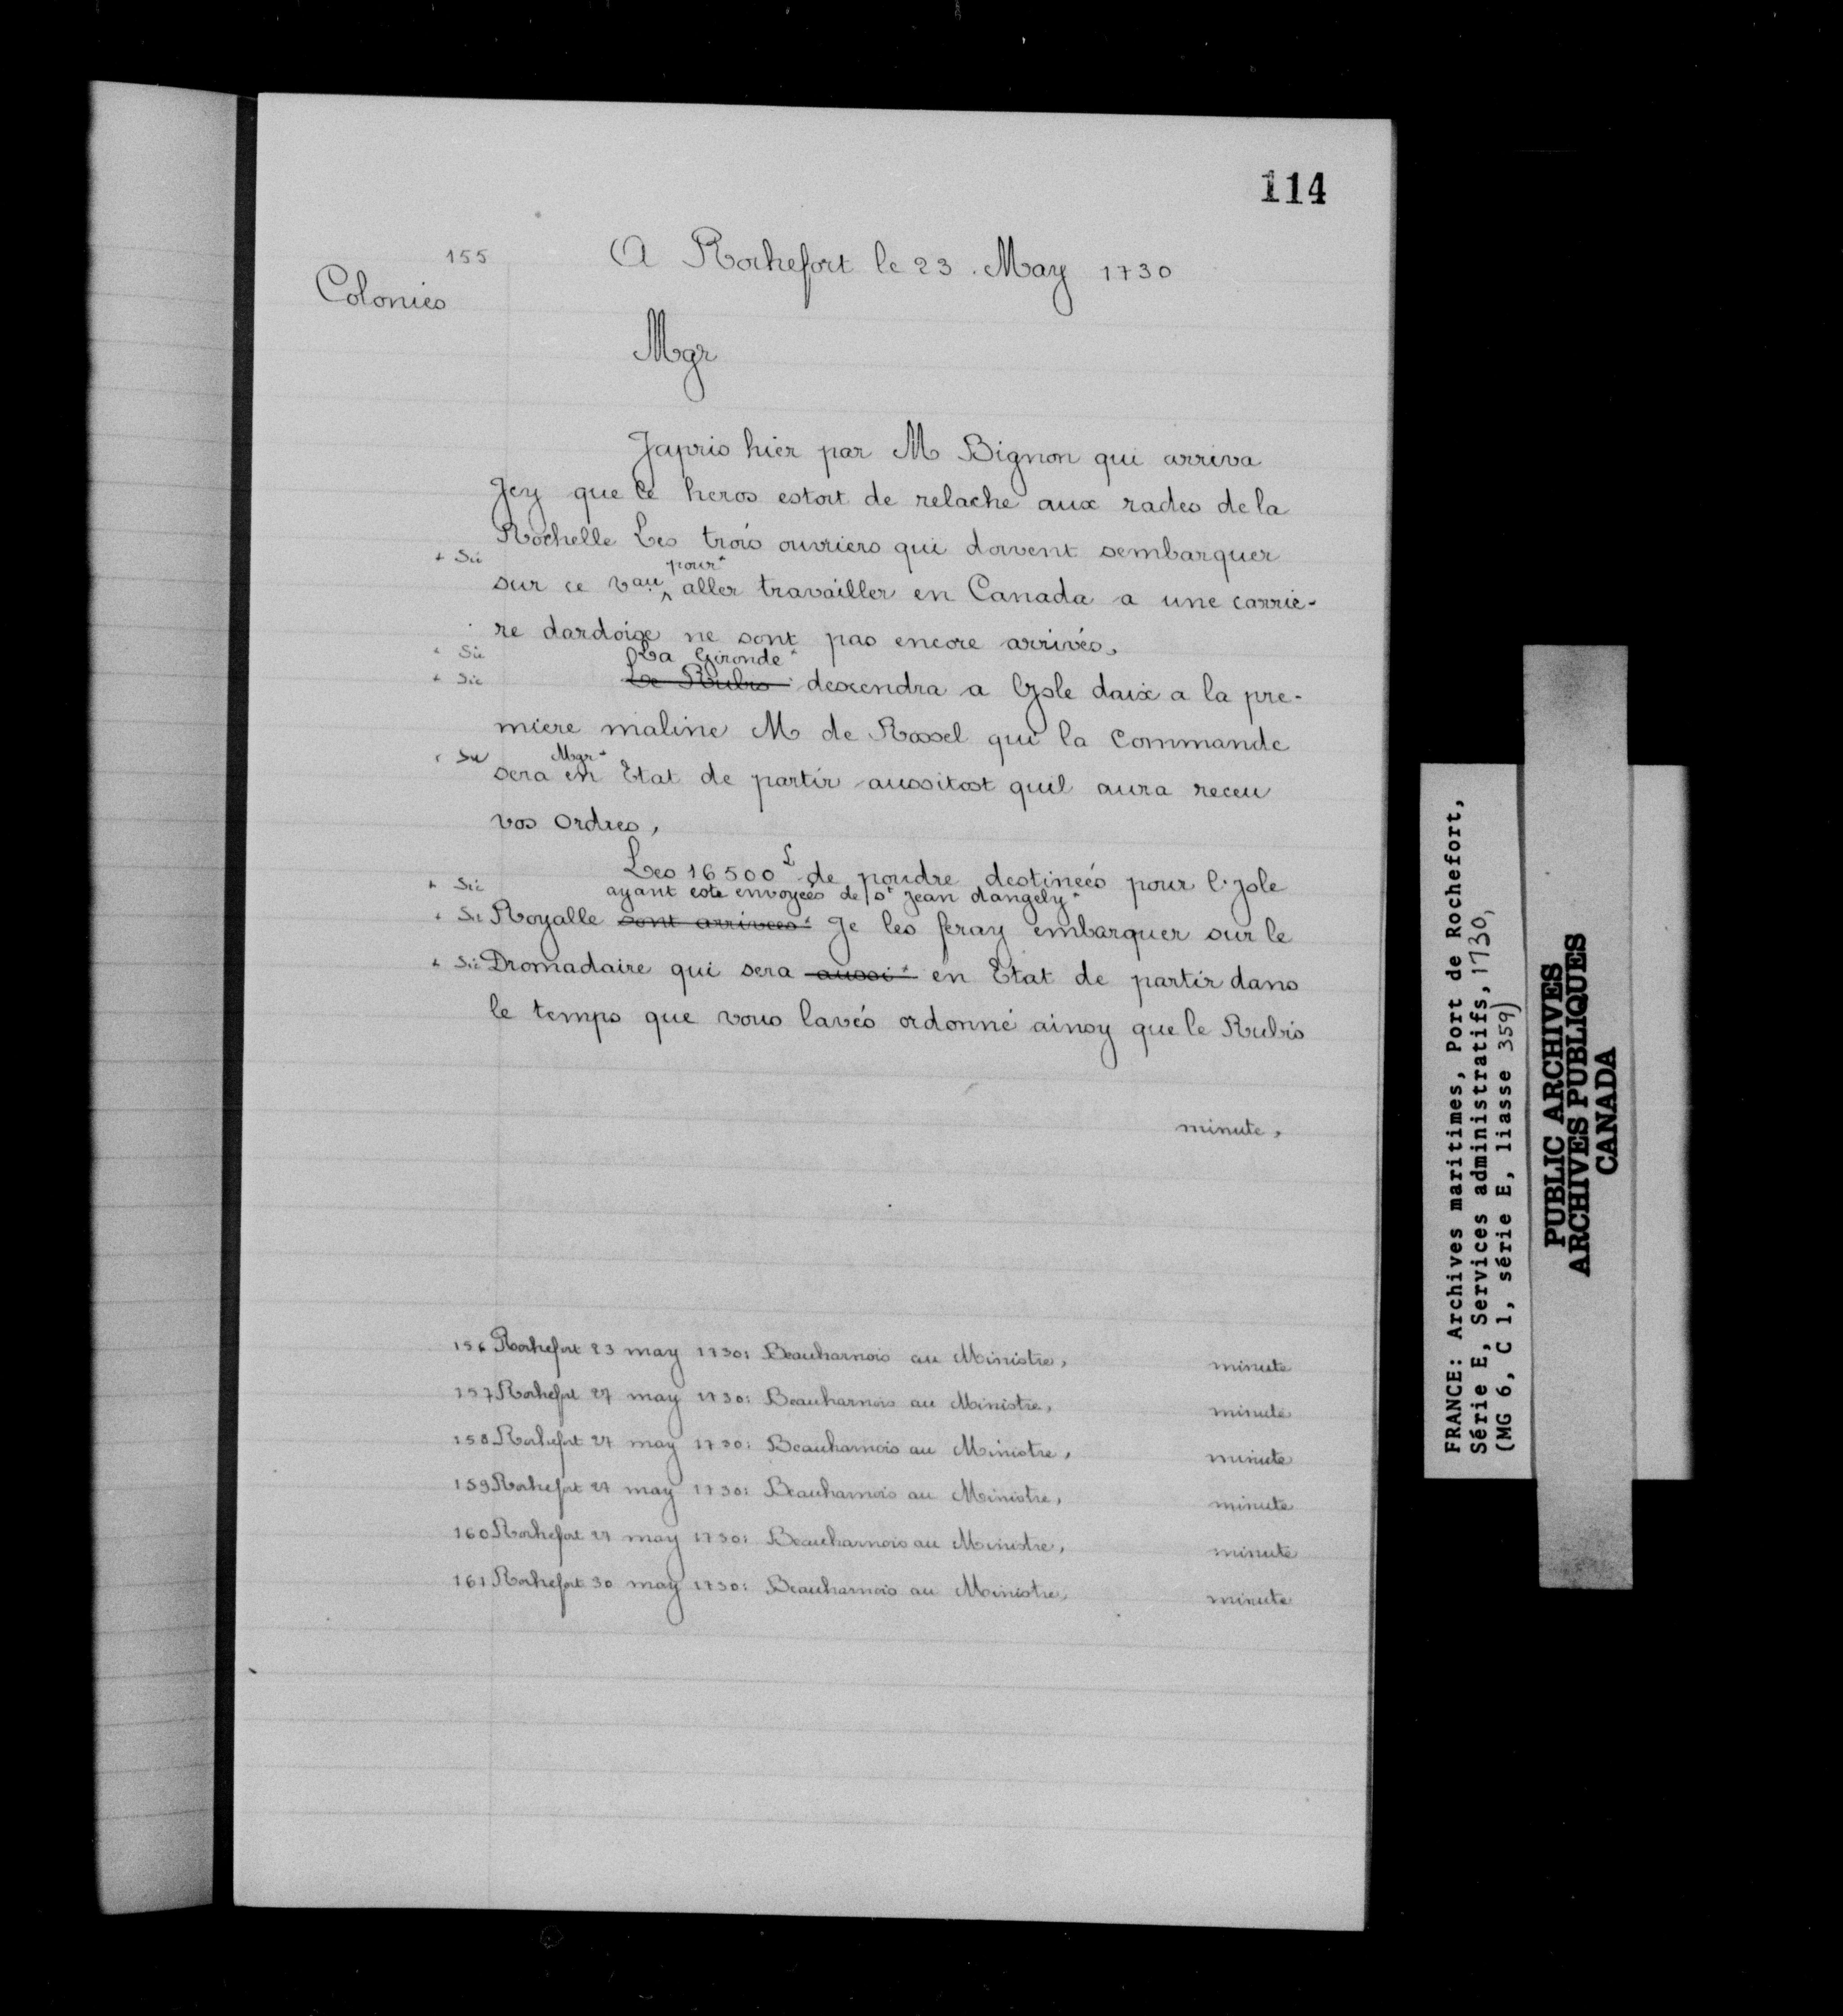 114
155
A Rochefort le 23. May 1730
Colonies
Mgr
Japris hier par M Bignon qui arriva
Jcy que le heros estoit de relache aux rades de la
Rochelle Les trois ouvriers qui doivent sembarquer
+ Sic
pour+
sur ce vau aller travailler en Canada a une carrie-
re dardoise ne sont pas encore arrivés,
+ Sic
La Gironde+
+ Sic
Le Rubis descendra a lJsle daix a la pre-
miere maline M de Rossel qui la Commande
+ Sic
Mgr+
sera en Etat de partir aussitost quil aura receu
vos Ordres,
Les 16500 L de poudre destinées pour l'Jsle
+ Sic
ayant esté envoyées de St Jean dangely+
+ Sic Royalle sont arrivees+ Je les feray embarquer sur le
+ Sic Dromadaire qui sera aussi+ en Etat de partir dans
le temps que vous lavés ordonné ainsy que le Rubis
minute,
156 Rochefort 23 may 1730: Beauharnois au Ministre, minute
157 Rochefort 27 may 1730: Beauharnois au Ministre, minute
158 Rochefort 27 may 1730: Beauharnois au Ministre, minute
159 Rochefort 27 may 1730: Beauharnois au Ministre, minute
160 Rochefort 27 may 1730: Beauharnois au Ministre, minute
161 Rochefort 30 may 1730: Beauharnois au Ministre, minute
FRANCE: Archives maritimes, Port de Rochefort,
Série E, Services administratifs, 1730,
(MG 6, C 1, série E, liasse 359)
PUBLIC ARCHIVES
ARCHIVES PUBLIQUES
CANADA